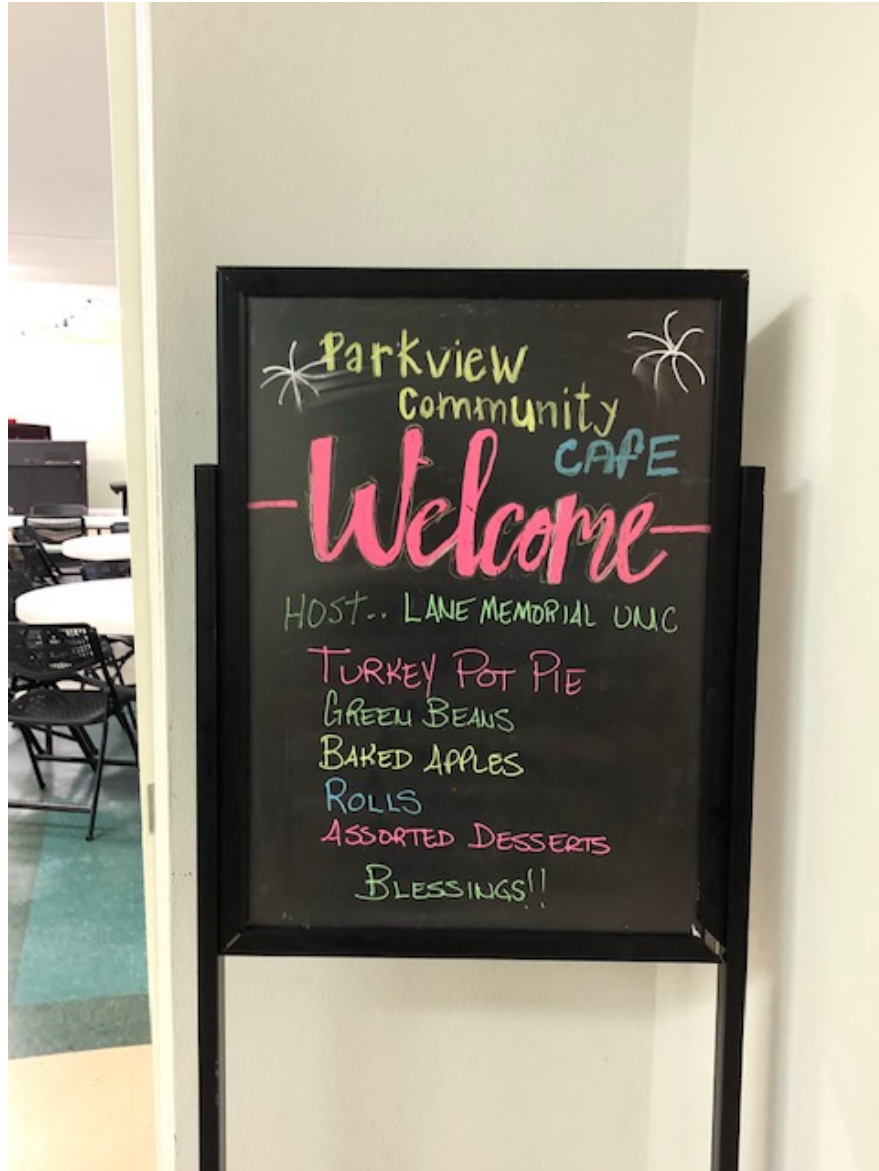 Parkview
Community
CAFE
-Welcome-
HOST.. LANE MEMORIAL UMC
TURKEY POT PIE
GREEN BEANS
BAKED APPLES
ROLLS
ASSORTED DESSERTS
BLESSINGS!!